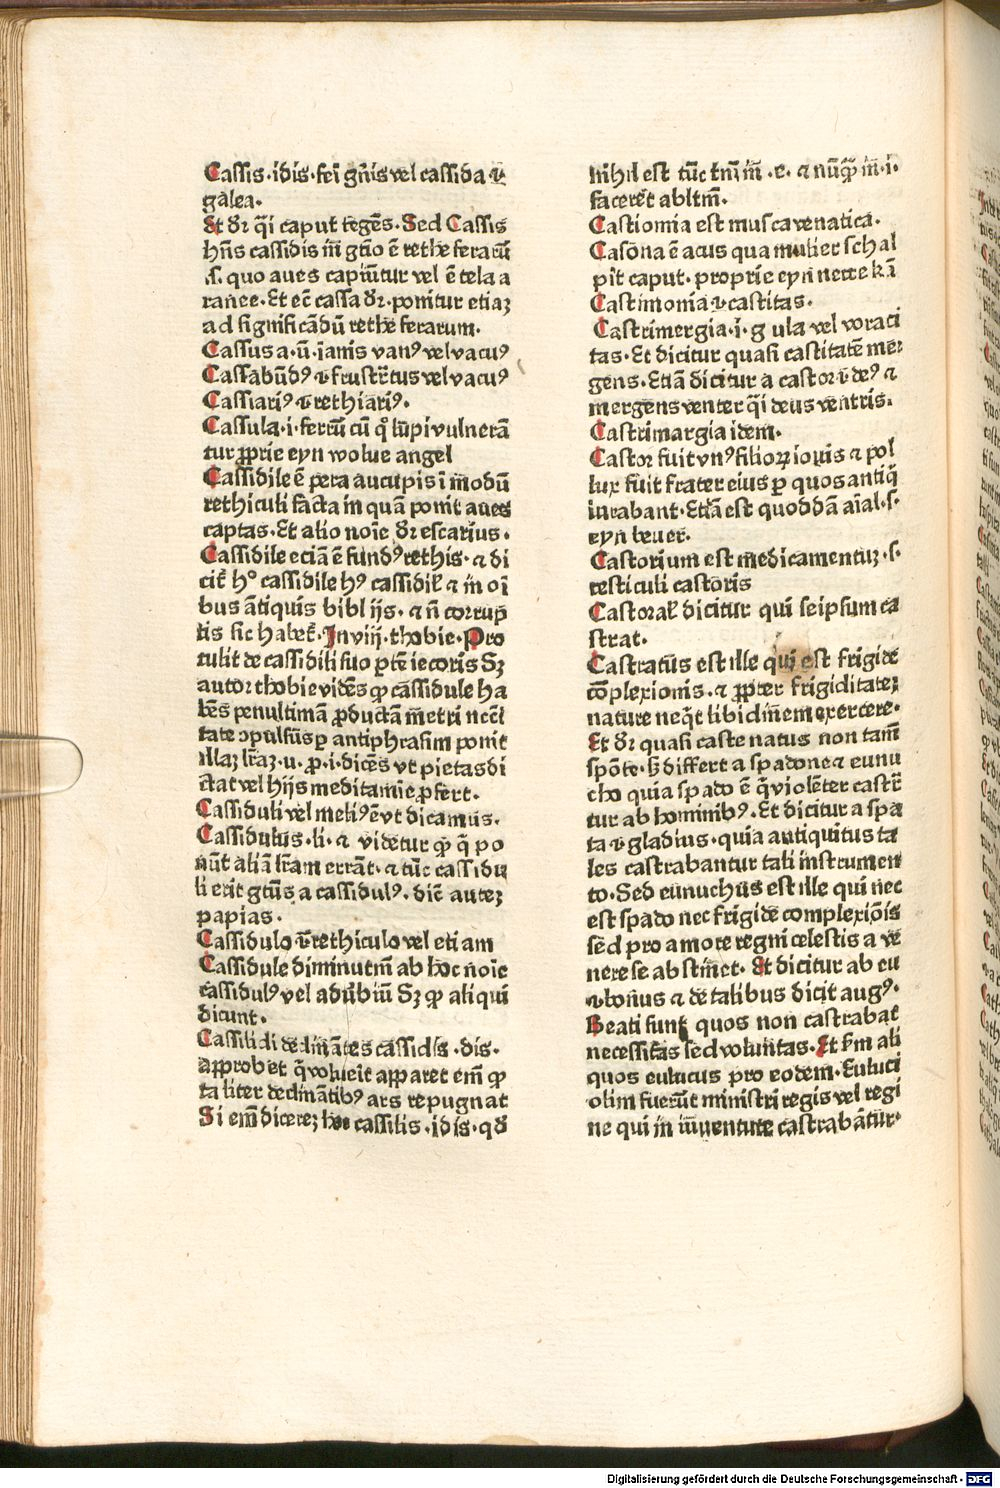 Cassis·idis·fei̅ gn̅is vel cassida ꝟ
galea·
Et dr̅ q̅i caput tege̅s· Sed Cassis
hn̅s cassidis i̅n gt̅io e̅ rethe feraru̅
.s. quo aues capiu̅tur vel e̅ tela a
ranee· Et ec̅ cassa dr̅· ponitur etiaꝫ
ad significa̅du̅ rethe ferarum·
Cassus a·u̅·ianis vanꝰ vel vacuꝰ
Cassabu̅dꝰ ꝟ frustr̅tus vel vacuꝰ
Cassiariꝰ ꝟ rethiariꝰ·
Cassula·i·ferru̅ cu̅ qͦ lu̅pi vulnera̅
tur ꝓprie eyn wolue angel
Cassidile e̅ pera aucupis i̅ modu̅
rethiculi facta in qua̅ ponit aues
captas· Et alio noi̅e dr̅ escarius·
Cassidile ecia̅ e̅ fundꝰ rethis· ⁊ di
cit̅ hͦ cassidile hꝰ cassidil̅ ⁊ in oi̅
bus a̅tiquis biblijs· ⁊ n̅ corrup̅
tis sic habet̅· In viij· thobie· Pro
tulit de cassidili suo ꝑte̅ iecoris Sꝫ
autor thobie vide̅s ꝙ cassidule ha
be̅s penultima̅ ꝓducta̅ metri nec̅i
tate ↄpulsus ꝑ antiphrasim ponit
illaꝫ lr̅aꝫ·u·ꝓ·i·dice̅s vt pietas di
ctat vel hijs meditamie̅ ꝓfert·
Cassiduli vel meliꝰ e̅ vt dicamus·
Cassidulus·li·⁊ videtur ꝙ q̅ po
nu̅t alia̅ lr̅am erra̅t· ⁊ tu̅c cassidu
li erit gt̅us a cassidulꝰ· dic̅ auteꝫ
papias·
Cassidulo ꝟ rethiculo vel etiam
Cassidule diminutu̅ ab hoc noi̅e
cassidulꝰ vel adu̅biu̅ Sꝫ ꝙ aliqui
dicunt·
Cassilidi decli̅a̅tes cassidis·dis·
approbet q̅ voluerit apparet em̅ ꝙ
taliter declina̅tibꝰ ars repugnat
Si em̅ dicereꝫ hoc cassilis·idis·qd̅
nihil est tu̅c tn̅i i̅n·e·⁊ nu̅qꝫ i̅n·i·
faceret abltm̅·
Castiomia est musca venatica·
Caso̅na e̅ acus qua mulier schal
pit caput· proprie eyn nette ka̅
Castimonia ꝟ castitas·
Castrimergia·i·gula vel voraci
tas· Et dicitur quasi castitate̅ mer
gens· Etia̅ dicitur a castor ꝟ deꝰ ⁊
mergens venter q̅i deus ventris·
Castrimargia idem·
Castor fuit vnꝰ filioꝝ iouis ⁊ pol
lux fuit frater eius ꝑ quos antiq̅
iurabant· Etia̅ est quodda̅ ai̅al·s·
eyn beuer·
Castorium est medicamentuꝫ·s·
testiculi castoris
Castoral̅ dicitur qui seipsum ca
strat·
Castratus est ille qui est frigide
co̅plexionis·⁊ ꝓpter frigiditateꝫ
nature neq̅t libidinem exercere·
Et dr̅ quasi caste natus non tam̅
spo̅te·sꝫ differt a spadone ⁊ eunu
cho quia spado e̅ q̅ viole̅ter castr̅
tur ab hominibꝰ· Et dicitur a spa
ta ꝟ gladius· quia antiquitus ta
les castrabantur tali instrumen
to· Sed eunuchus est ille qui nec
est spado nec frigide complexio̅is
sed pro amore regni celestis a ve
nere se abstinet· Et dicitur ab eu
ꝟ bonus ⁊ de talibus dicit augꝰ·
Beati sunt quos non castrabat
necessitas sed voluntas· Et s̅m ali
quos eulucus pro eodem· Euluci
olim fueru̅t ministri regis vel regi
ne qui in iuuentute castraba̅tur·
Digitalisierung gefördert durch die Deutsche Forschungsgemeinschaft - DFG